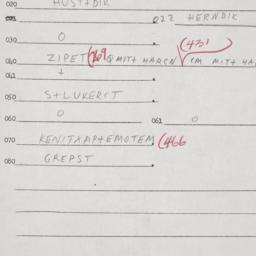 020 HUST+DIR
022 HERNDIK
030 O
(431
040 ZIPET (269 MIT+ HARCN CM MIT+ HA
041 +
050 S+LUKERCT
060 O 061 O
070 KENITXAP+EMOTEM (466
080 GREPST